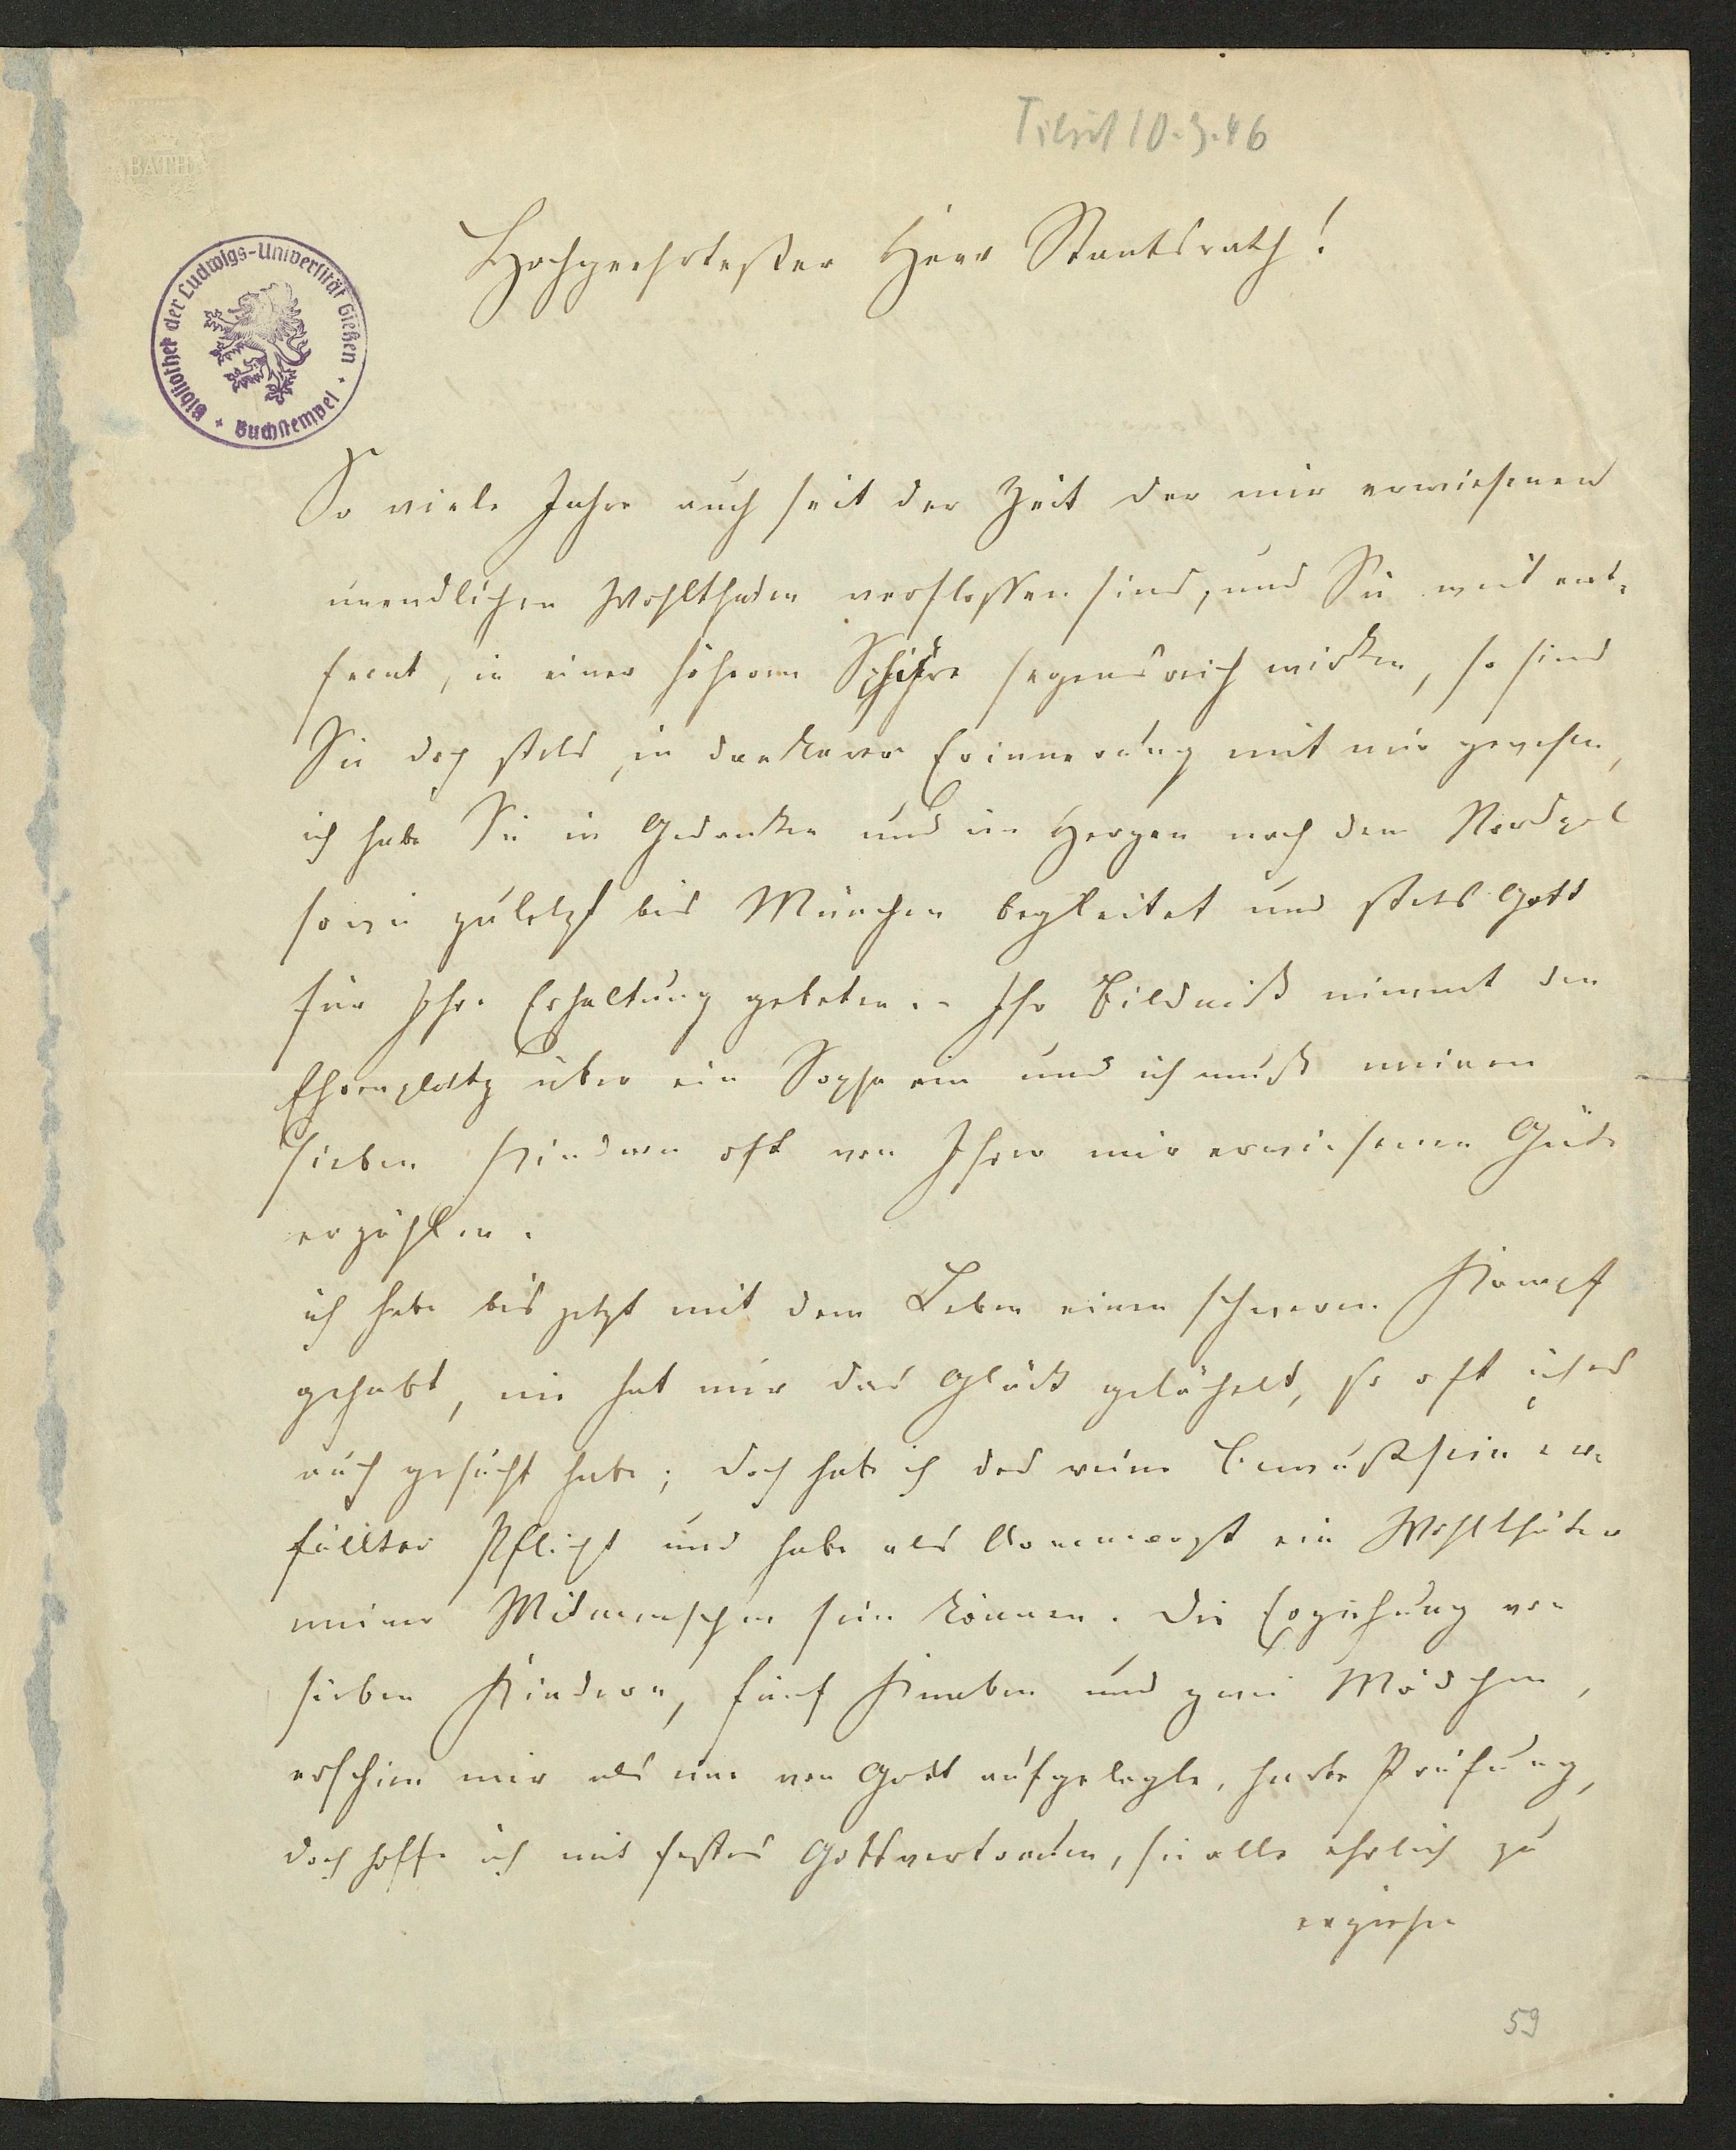 Tilsit 10.3.46
BATH
Bibliothek der Ludwigs-Universität Gießen
+ Buchstempel +
Hochgeehrtester Herr Staatsrath!
So viele Jahre auch seit der Zeit der mir erwiesenen
unendlichen Wohlthaten verflossen sind, und Sie weit ent-
fernt, in einer höheren Sphäre segensreich wirken, so sind
Sie doch stets in dankbarer Erinnerung mit mir gewesen,
ich habe Sie in Gedanken und im Herzen nach dem Nordpol
sowie zuletzt bis München begleitet und stets Gott
für Ihre Erhaltung gebeten. - Ihr Bildniß nimmt den
Ehrenplatz über ein Sopha ein und ich muß meinen
sieben Kindern oft von Ihrer mir erwiesenen Güte
erzählen.
ich habe bis jetzt mit dem Leben einen schweren Kampf
gehabt, nie hat mir das Glück gelächelt, so oft ich es
auch gesucht habe; doch habe ich das reine Bewußtsein er-
füllter Pflicht und habe als Armenarzt ein Wohlthäter
meiner Mitmenschen sein können. Die Erziehung von
sieben Kindern, fünf Knaben und zwei Mädchen,
erschien mir als eine von Gott aufgelegte, harte Prüfung,
doch hoffe ich mit festes Gottvertrauen, sie alle ehrlich zu
erziehen
59